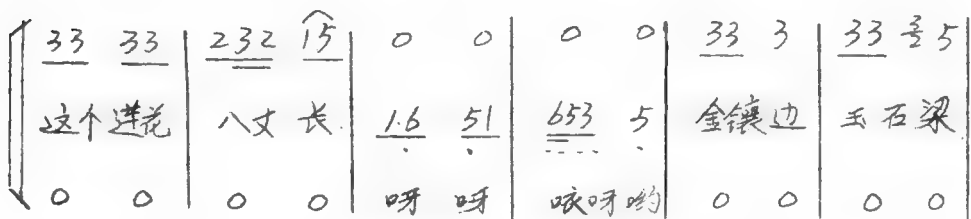 33 33 | 232 15 | 0 0 | 0 0 | 33 3 | 33 3/2 5
这个莲花 | 八丈 长 | 1.6 51 | 653 5 | 金镶边 | 玉石梁
0 0 | 0 0 | 呀 呀 | 咴呀哟 | 0 0 | 0 0